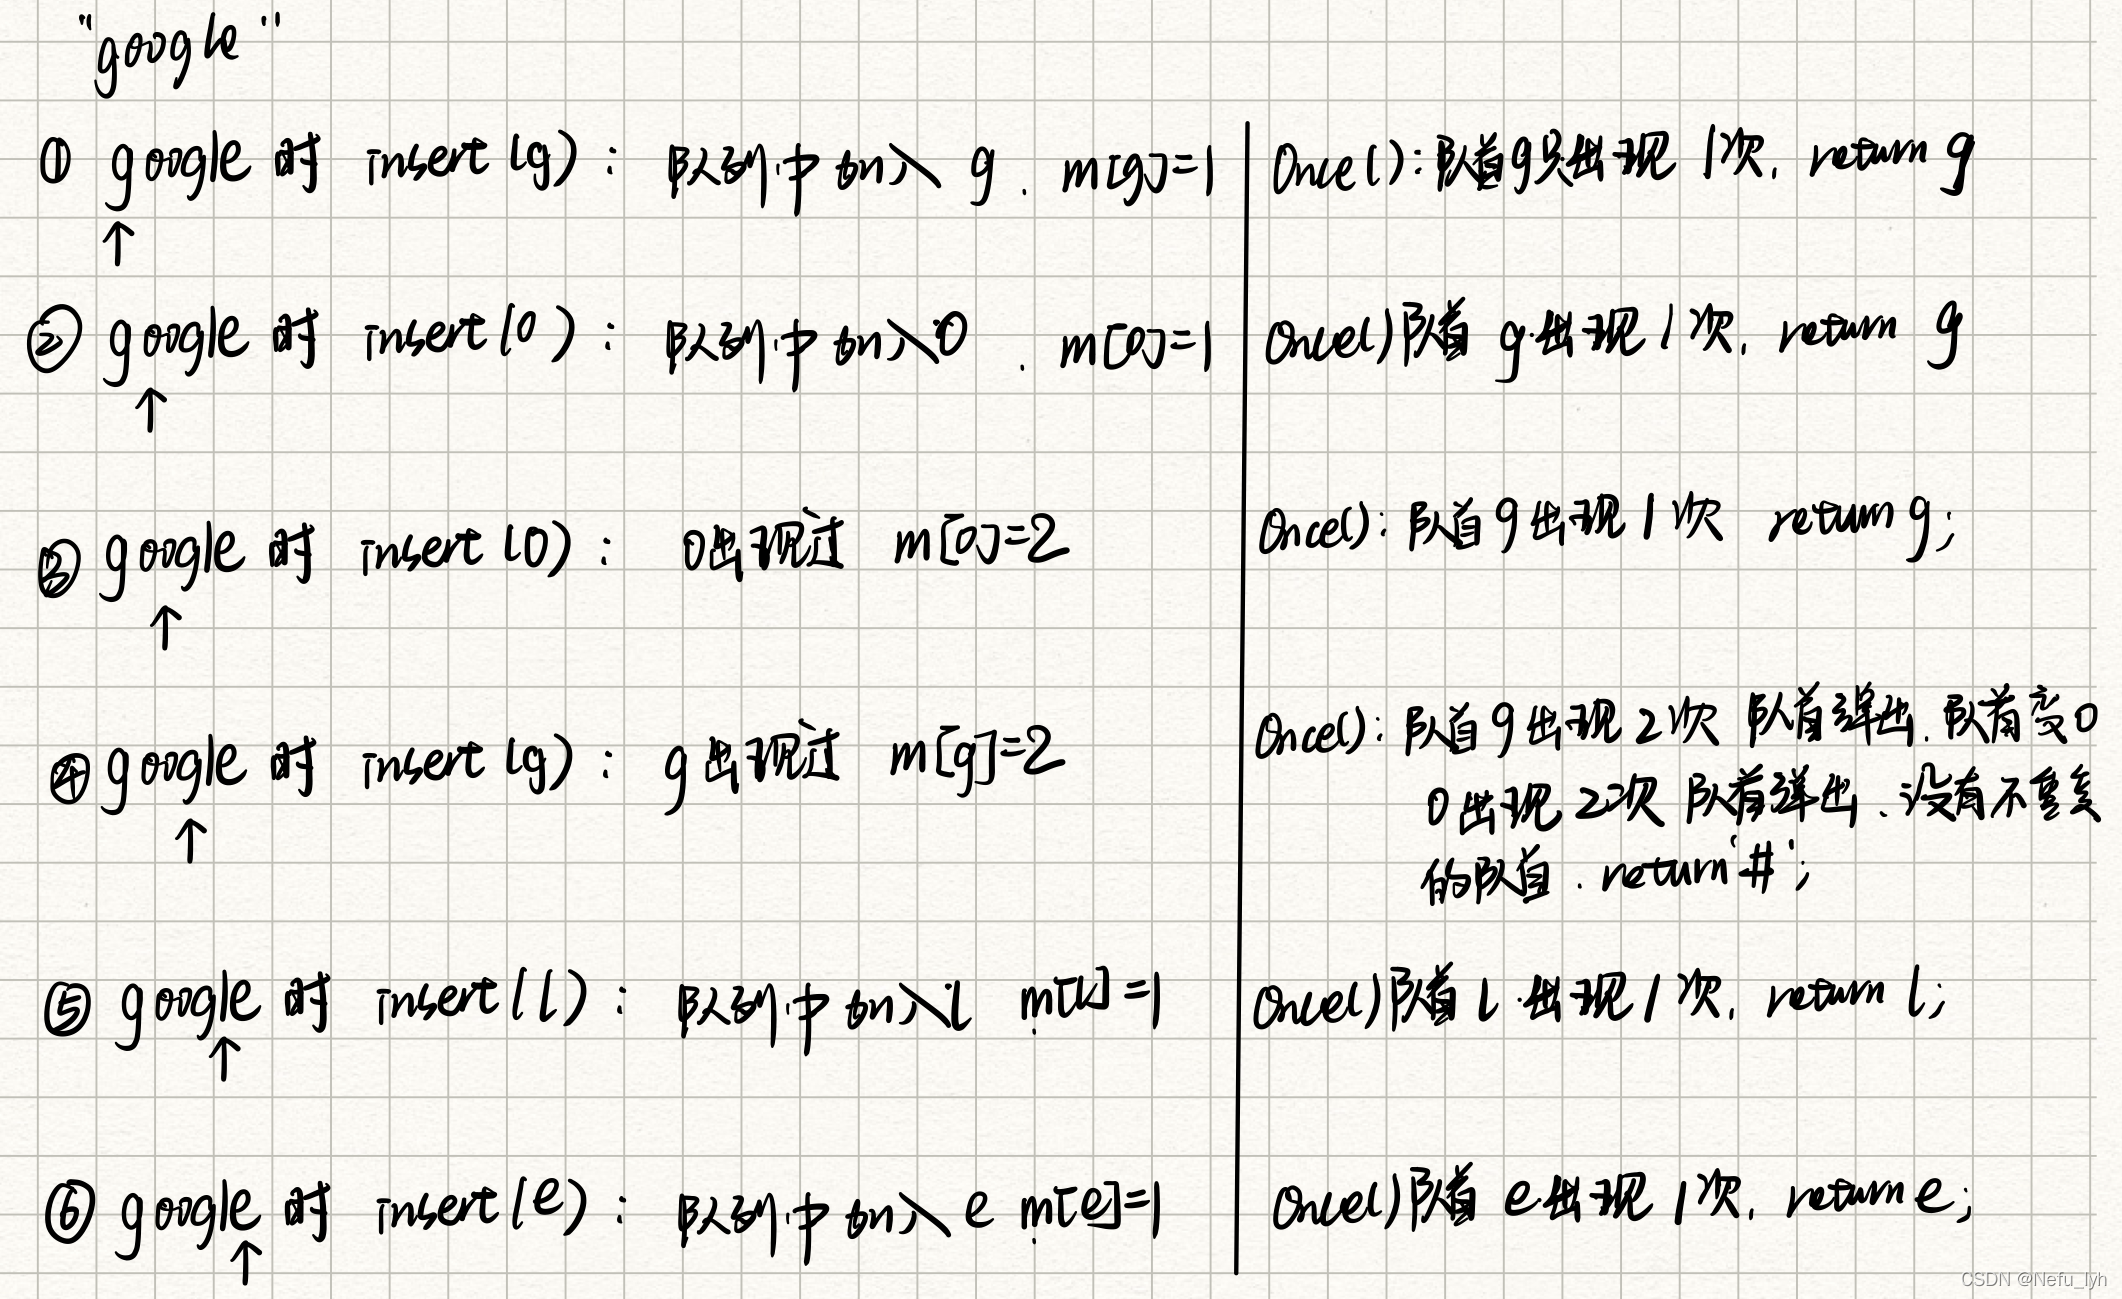 "google"
① google 时 insert(g): 队列中加入 g. m[g]=1 Once(): 队首g只出现 1次, return g
↑
② google 时 insert(o): 队列中加入o. m[o]=1 Once()队首 g出现1次, return g
↑
③ google 时 insert(o): o出现过 m[o]=2 Once(): 队首g出现1次 return g;
↑
④ google 时 insert(g): g出现过 m[g]=2 Once(): 队首g出现2次 队首弹出. 队首变o
↑ o出现2次 队首弹出. 没有不重复
的队首. return '#';
⑤ google 时 insert(l): 队列中加入l m[l]=1 Once()队首 l出现1次, return l;
↑
⑥ google 时 insert(e): 队列中加入 e m[e]=1 Once()队首 e出现1次, return e;
↑
CSDN @Nefu_lyh